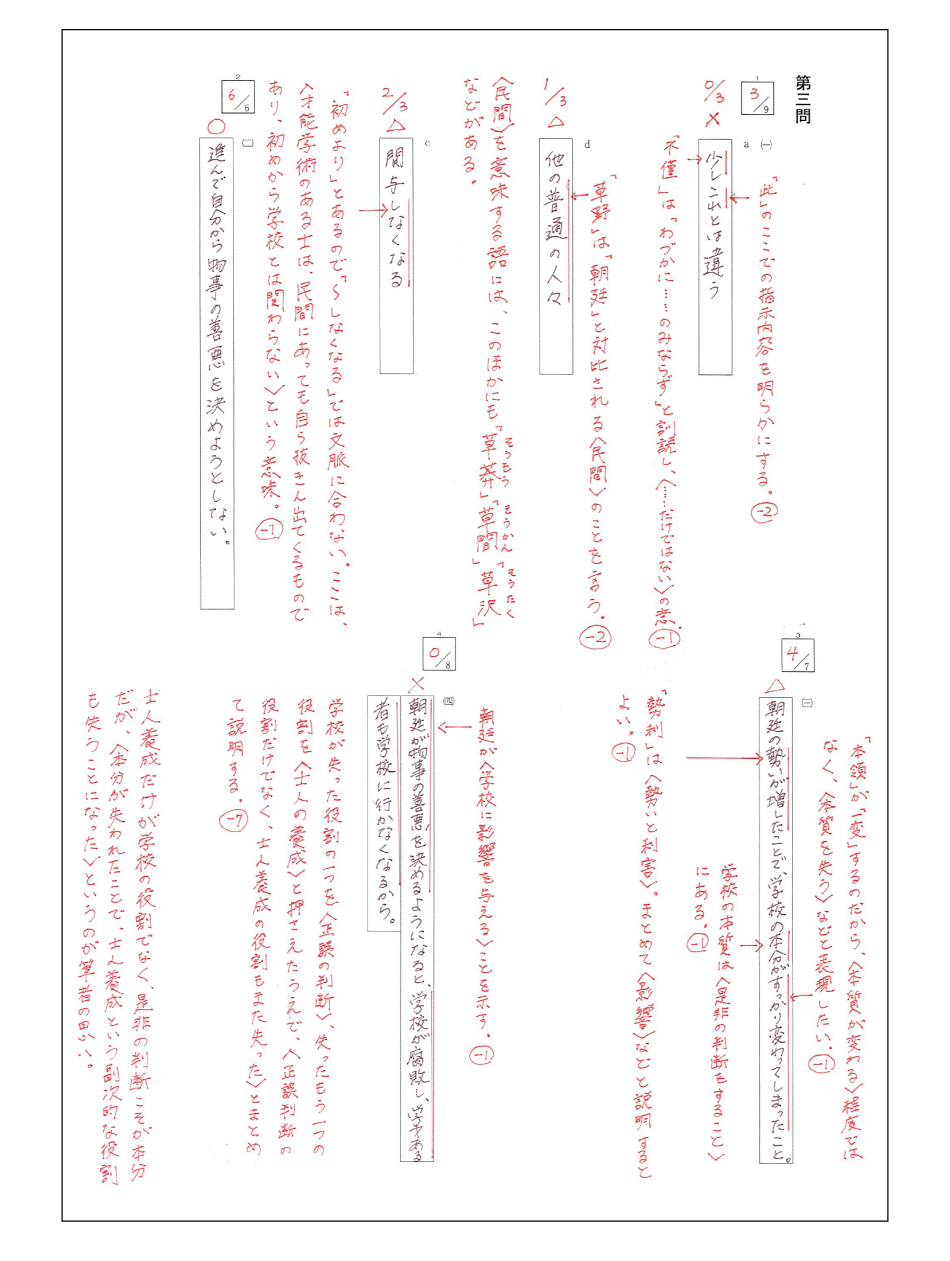 第三問
1
3/9
(一)
a
0/3
×
少しこれとは違う
「此」のここでの指示内容を明らかにする。-2
「不僅」は「わづかに……のみならず」と訓読し、〈……だけではない〉の意。-1
d
1/3
△
他の普通の人々
「草野」は「朝廷」と対比される〈民間〉のことを言う。-2
〈民間〉を意味する語には、このほかにも「草莽」「草間」「草沢」
そうもう そうかん そうたく
などがある。
e
2/3
△
関与しなくなる
「初めより」とあるので「〜しなくなる」では文脈に合わない。ここは、
〈才能学術のある士は、民間にあっても自ら抜きん出てくるもので
あり、初めから学校とは関わらない〉という意味。-1
2
6/6
○
(二)
進んで自分から物事の善悪を決めようとしない。
3
4/7
△
(三)
朝廷の勢いが増したことで、学校の本分がすっかり変わってしまったこと。
「本領」が「一変」するのだから、〈本質が変わる〉程度では
なく、〈本質を失う〉などと表現したい。-1
学校の本質は〈是非の判断をすること〉
にある。-1
「勢利」は〈勢いと利害〉。まとめて〈影響〉などと説明すると
よい。-1
4
0/8
×
(四)
朝廷が物事の善悪を決めるようになると、学校が腐敗し、学予ある
者も学校に行かなくなるから。
朝廷が〈学校に影響を与える〉ことを示す。-1
学校が失った役割の一つを〈正誤の判断〉、失ったもう一つの
役割を〈士人の養成〉と押さえたうえで、〈正誤判断の
役割だけでなく、士人養成の役割もまた失った〉とまとめ
て説明する。-7
士人養成だけが学校の役割でなく、是非の判断こそが本分
だが、〈本分が失われたことで、士人養成という副次的な役割
も失うことになった〉というのが筆者の思い。